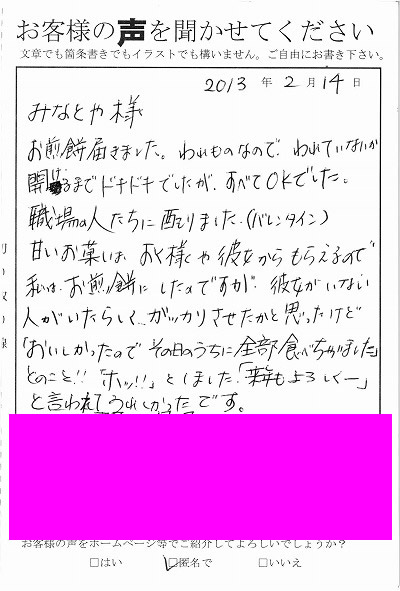 お客様の声を聞かせてください
文章でも箇条書きでもイラストでも構いません。ご自由にお書き下さい。
2013年2月14日
みなとや様
お煎餅届きました。われものなので、われていないか
開けるまでドキドキでしたが、すべてOKでした。
職場の人たちに配りました。(バレンタイン)
甘いお菓子は、おく様や彼女からもらえるので
私は、お煎餅にしたのですが、彼女がいない
人がいたらしく、ガッカリさせたかと思ったけど
「おいしかったのでその日のうちに全部食べちゃいました」
とのこと!!「ホッ!!」としました。「来年もよろしくー」
と言われてうれしかったです。
お客様の声をホームページ等でご紹介してよろしいでしょうか?
□はい ☑匿名で □いいえ